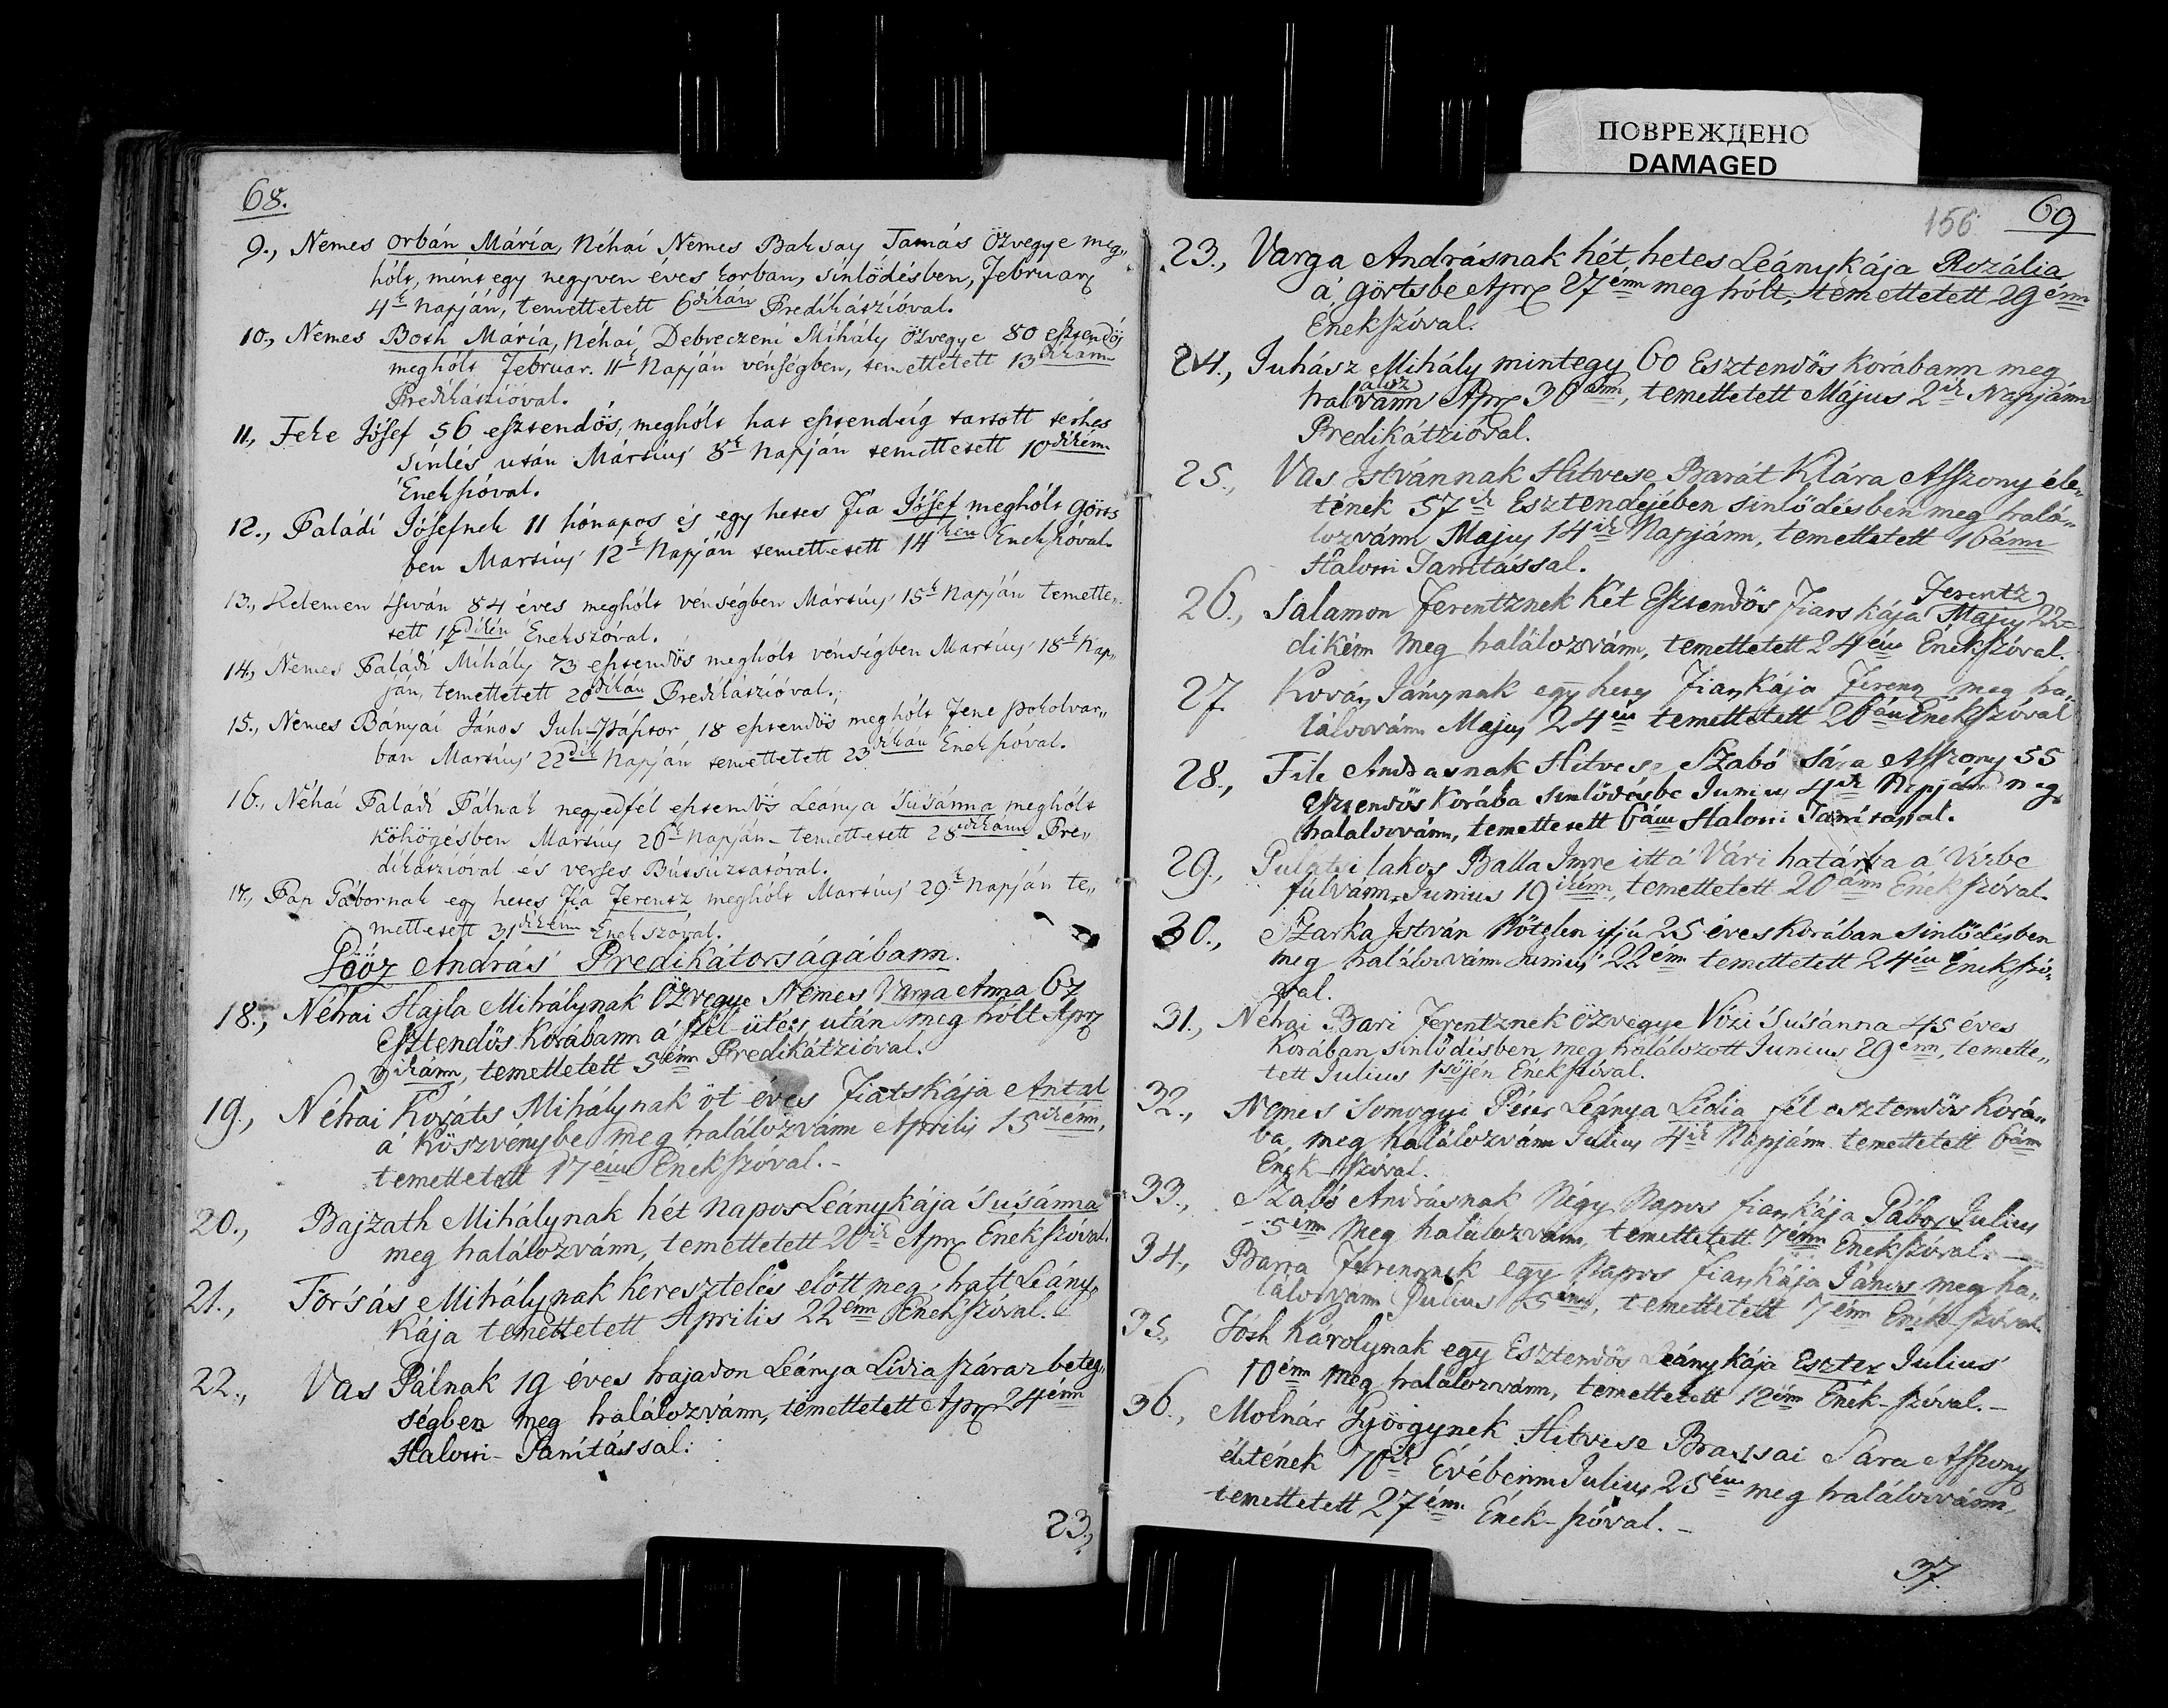 ПОВРЕЖДЕНО
DAMAGED
68.
9., Nemes Orbán Mária, Néhai Nemes Baksay Tamás Özvegye meg„
hólt, mint egy negyven éves korban, sinlődésben, Február
4k Napján, temettetett 6dikán Prédikátzióval.
10., Nemes Both Mária, Néhai, Debreczeni Mihály Özvegye 80 esztendős
meghólt Február. 11k Napján vénségben, temettetett 13dikán
Prédikátzióval.
11., Feke Jósef 56 esztendős, meghólt hat esztendeig tartott terhes
sinlés után Mártius 8k Napján temettetett 10dikén
Énekszóval.
12., Paládi Jósefnek 11 hónapos és egy hetes Fia Jósef meghólt görts
ben Martius 12k Napján temettetett 14kén Énekszóval.
13., Kelemen István 84 éves meghólt vénségben Mártius 15k Napján temette„
tett 17dikén Énekszóval.
14., Nemes Paládi Mihály 73 esztendős meghólt vénségben Martius 18k Nap„
ján, temettetett 20dikán Prédikátzióval.
15., Nemes Bányai János Juh-Pásztor, 18 esztendős meghólt Fene pokolvar„
ban Martius 22dik Napján temettetett 23dikán Énekszóval.
16., Néhai Paládi Pálnak negyedfél esztendős Leánya Susánna meghólt
köhögésben Martius 26k Napján temettetett 28dikánn Pré„
dikátzióval és verses Bútsúztatóval.
17., Pap Gábornak egy hetes Fia Ferentz meghólt Martius 29k Napján te„
mettetett 31dikén Énekszóval.
Göőz András Predikátorságábann.
18., Néhai Hajla Mihálynak Özvegye Nemes Varga Anna 67
Esztendős Korábann a' szél ütés után meg hólt Apr
3ikánn, temettetett 5énn Predikátzióval.
19., Néhai Kováts Mihálynak öt éves Fiatskája Antal
a' Köszvénybe meg halálozvánn Aprilis 15ikénn,
temettetett 17énn Énekszóval.-
20., Bajzath Mihálynak hét napos Leánykája Susánna
meg halálozvánn, temettetett 20ik Apr Énekszóval.
21., Forsás Mihálynak keresztelés előtt meg-halt Leány„
kája temettetett Aprilis 22énn Énekszóval.
22., Vas Pálnak 19 éves hajadon Leánya Lidia száraz beteg„
ségben meg halálozvánn, temettetett Apr 24énn
Halotti-Tanítással.
23.,
156 69
23., Varga Andrásnak hét hetes Leánykája Rozália
a' görtsbe Apr 27énn meg hólt, temettetett 29énn
Énekszóval.
24., Juhász Mihály mintegy 60 Esztendős korábann meg
aloz
halvánn Apr 30ánn, temettetett Május 2ik Napjánn
Predikátzióval.
25., Vas Istvánnak Hitvese Barát Klára Asszony éle„
tének 57ik Esztendejében sinlődésben meg halá„
lozvánn Majus 14ik Napjánn, temettetett 16ánn
Halotti Tanitással.
Ferentz
26., Salamon Ferentznek Két Esztendős Fiatskája Majus 22
dikénn meg halálozvánn, temettetett 24énn Énekszóval.
27. Kováts Jánosnak egy hetes Fiatskája Ferentz meg ha„
lálozvánn Majus 24én temettetett 26án Énekszóval
28., File Andrasnak Hitvese Szabó Sára Asszony 55
Esztendős Korába sinlődésbe Junius 4ik Napjánn meg
halálozvánn, temettetett 6ánn Halotti Tanítással.
29., Pulatsi lakos Balla Imre itt a' Vári határba a' Vízbe
fúlvánn Junius 19ikénn, temettetett 20ánn Énekszóval.
30., Szarka István Nőtelen ifjú 25 éves korában sinlődésben
meg halálozvánn Junius 22énn temettetett 24én Énekszó„
val.
31., Néhai Bari Ferentznek özvegye Vízi Susánna 45 éves
Korában, sinlődésben, meg halálozott Junius 29énn, temette„
tett Julius 1sőjén Énekszóval.
32., Nemes Somogyi Péter Leánya Lidia fél esztendős korá„
ba, meg halálozvánn Julius 4ik Napjánn temettetett 6ánn
Ének-szóval.
33., Szabó Andrásnak Négy Napos fiatskája Gábor Julius
5énn meg halálozvánn, temettetett 7énn Énekszóval.-
34., Barra Ferentznek egy Napos fiatskája János meg ha„
lálozvann Julius 5énn, temettetett 7énn Ének-szóval
35., Tóth Károlynak egy Esztendős Leánykája Eszter Julius
10énn meg halálozvánn, temettetett 12énn Ének-szóval.-
36., Molnár Györgynek Hitvese Brassai Sara Asszony
életének 70ik Évébenn Julius 25én meg halálozvánn,
temettetett 27énn Ének-szóval.-
37.